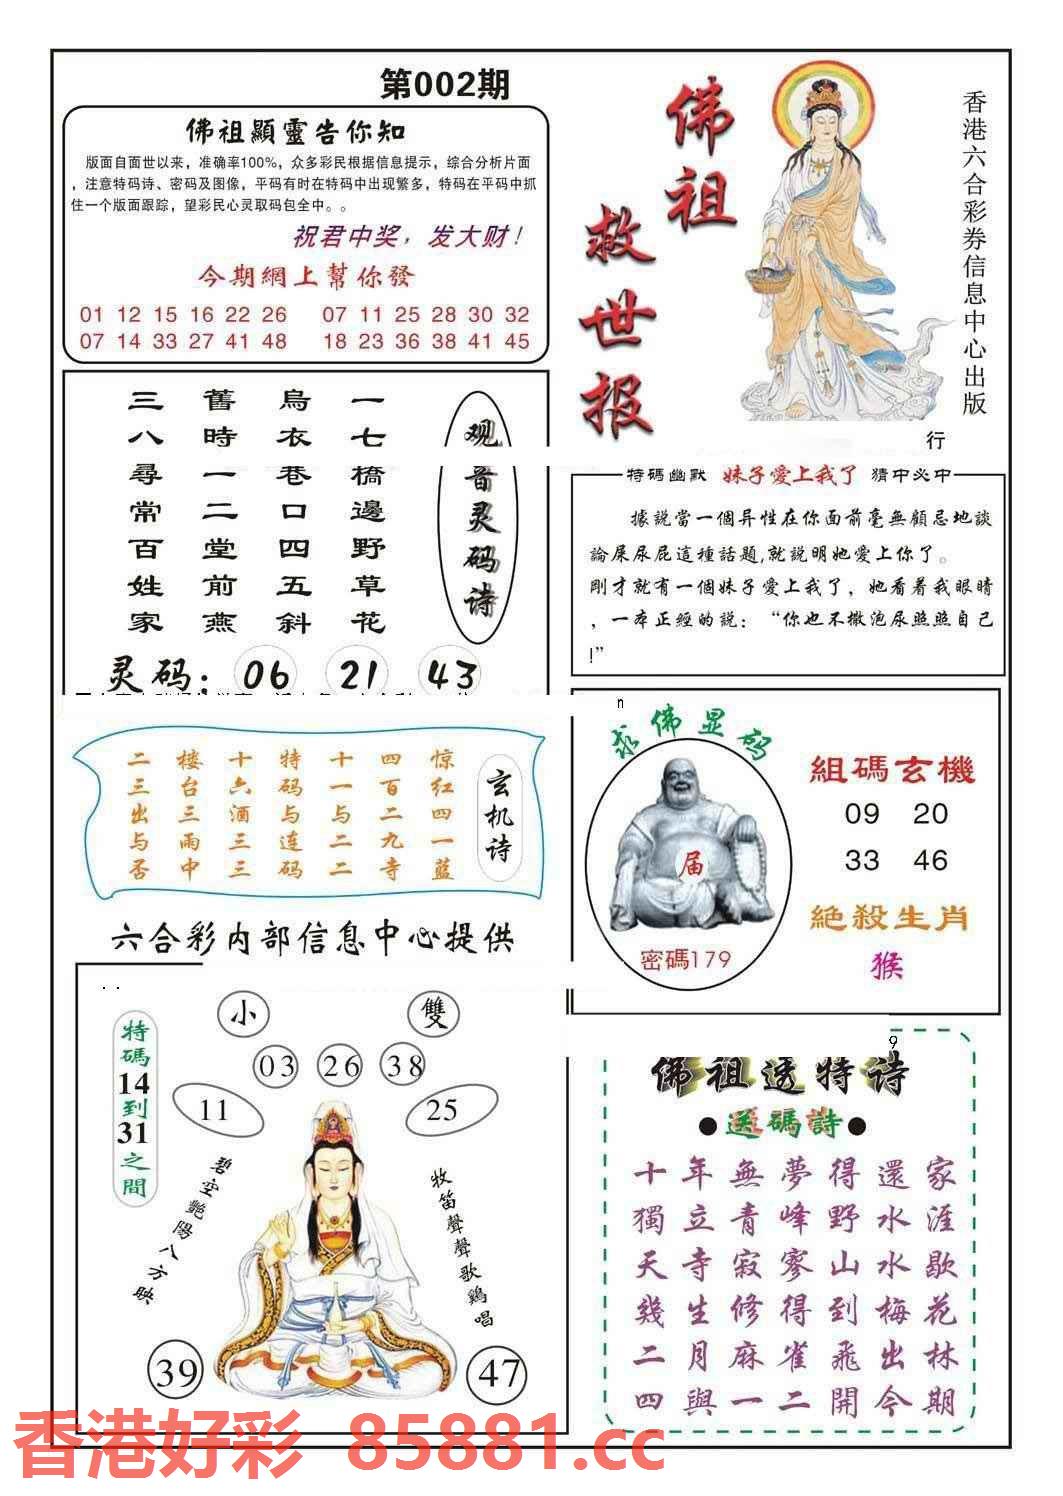 第002期
佛祖顯靈告你知
版面自面世以来，准确率100%，众多彩民根据信息提示，综合分析片面
，注意特码诗、密码及图像，平码有时在特码中出现繁多，特码在平码中抓
住一个版面跟踪，望彩民心灵取码包全中。。
祝君中奖，发大财！
今期網上幫你發
01 12 15 16 22 26 07 11 25 28 30 32
07 14 33 27 41 48 18 23 36 38 41 45
佛祖
救世报
香港六合彩券信息中心出版
行
观音灵码诗
一七橋邊野草花
烏衣巷口四五斜
舊時一二堂前燕
三八尋常百姓家
灵码：06 21 43
特碼幽默 妹子愛上我了 猜中必中
據說當一個异性在你面前毫無顧忌地談
論屎尿屁這種話題,就説明她愛上你了。
剛才就有一個妹子愛上我了，她看着我眼睛
，一本正經的説：“你也不撒泡尿照照自己
!”
n
玄机诗
惊红四一蓝
四百二九寺
十一与二二
特码与连码
十六酒三三
楼台三雨中
二三出与否
六合彩内部信息中心提供
求佛显码
届
密碼179
組碼玄機
09 20
33 46
絶殺生肖
猴
特碼14到31之間
小 雙
03 26 38
11 25
碧空艷陽八方映
牧笛聲聲歌鷄唱
39 47
9
佛祖透特诗
●送碼詩●
十年無夢得還家
獨立青峰野水涯
天寺寂寥山水歇
幾生修得到梅花
二月麻雀飛出林
四與一二開今期
香港好彩 85881.cc